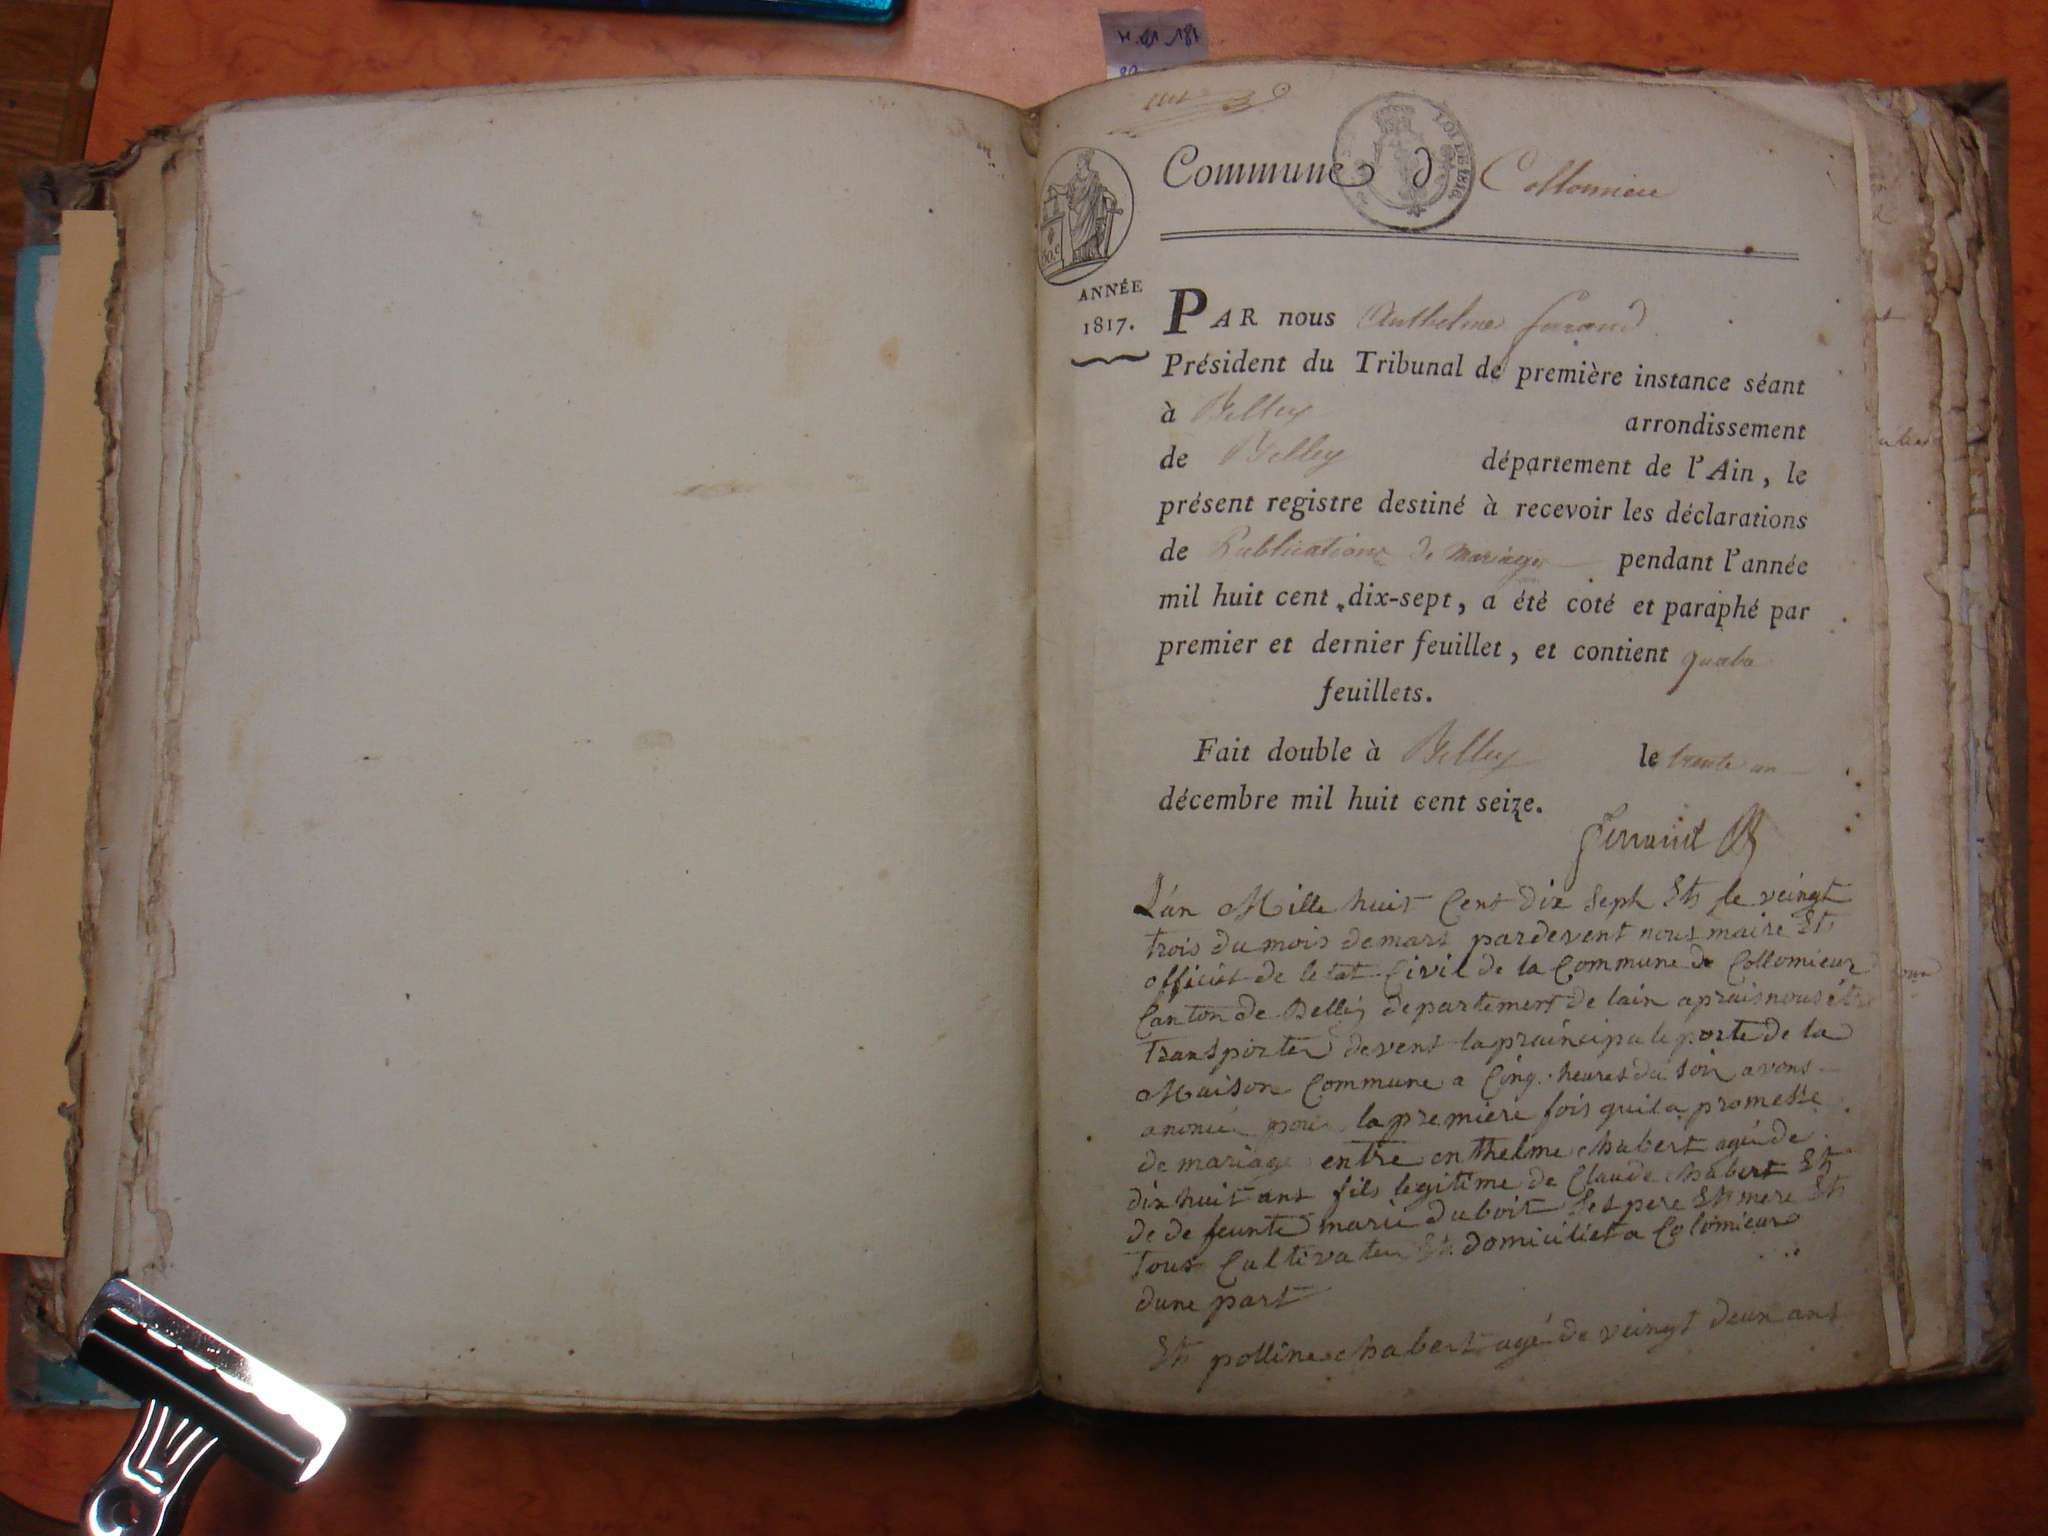 Commune d Collomieu
LOI DE 1816
50.c
ANNÉE
1817.
PAR nous Anthelme ferrand
Président du Tribunal de première instance séant
à Belley arrondissement
de Belley département de l'Ain, le
présent registre destiné à recevoir les déclarations
de Publications de mariages pendant l'année
mil huit cent dix-sept, a été coté et paraphé par
premier et dernier feuillet, et contient quatre
feuillets.
Fait double à Belley le trente un
décembre mil huit cent seize.
ferrand
L'an Mille huit Cent dix Seph Eth le veingt
trois du mois de mars pardevent nous maire Eth
officiet de letat Civil de la Commune de Collomieux
Canton de Belley departement de lain aprais nous étre
transporter devent la praincipale porte de la
Maison Commune a Cinq heures du soir avons
anoncé pour la premiere fois quil a promesse
de mariage entre enthelme chabert agé de
dix huit ans fils legitime de Claude chabert Eth
de defeunte marie duboit Ses pere Eth mere Eth
tous Cultivateu Eth domiciliet a Colomieux
dune part
Eth polline chabert agé de veingt deux ans